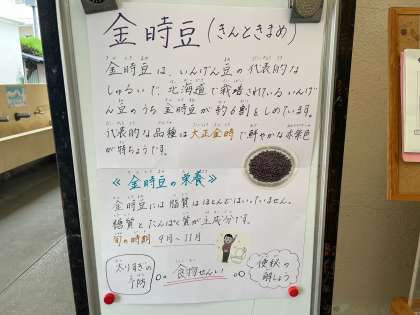 金時豆(きんときまめ)
金時豆は、いんげん豆の代表的な
しゅるいで、北海道で栽培されているいんげ
ん豆のうち金時豆が約6割をしめています。
代表的な品種は大正金時で鮮やかな赤紫色
が特ちょうです。
《金時豆の栄養》
金時豆には脂質はほとんどはいっていません。
糖質とたんぱく質が主成分です。
旬の時期 9月〜11月
太りすぎの
予防
食物せんい
便秘の
解しょう